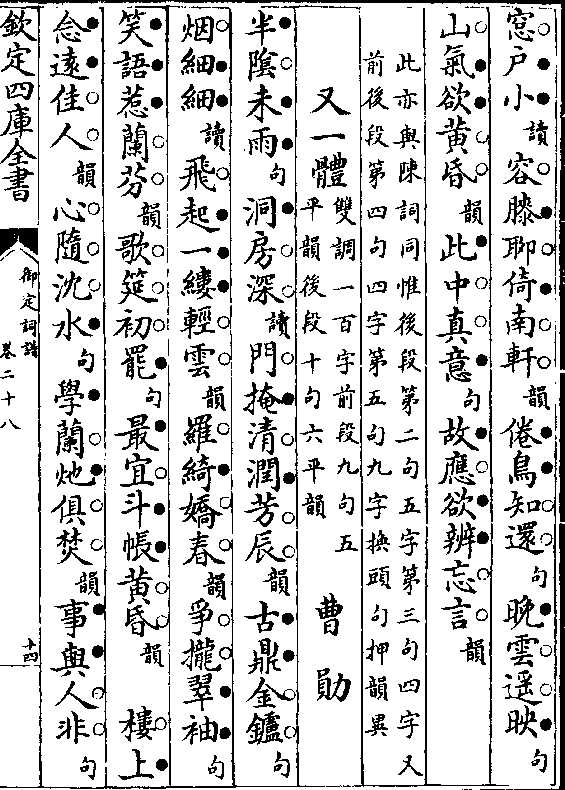 窓户小讀容膝聊倚南軒韻倦鳥知還句晚雲遥映句
山氣欲黄昏韻此中真意句故應欲辨忘言韻
此亦與陳詞同惟後段第二句五字第三句四字又
前後段第四句四字第五句九字換頭句押韻異
又一體雙調一百字前段九句五平韻後段十句六平韻 曹勛
半陰未雨句洞房深讀門掩清潤芳辰韻古鼎金鑪句
烟細細讀飛起一縷輕雲韻羅綺嬌春韻爭攏翠袖句
笑語惹蘭芬韻歌筵初罷句最宜斗帳黄昏韻 樓上
念遠佳人韻心隨沈水句學蘭灺俱焚韻事與人非句
欽定四庫全書
御定詞譜
卷二十八
十四